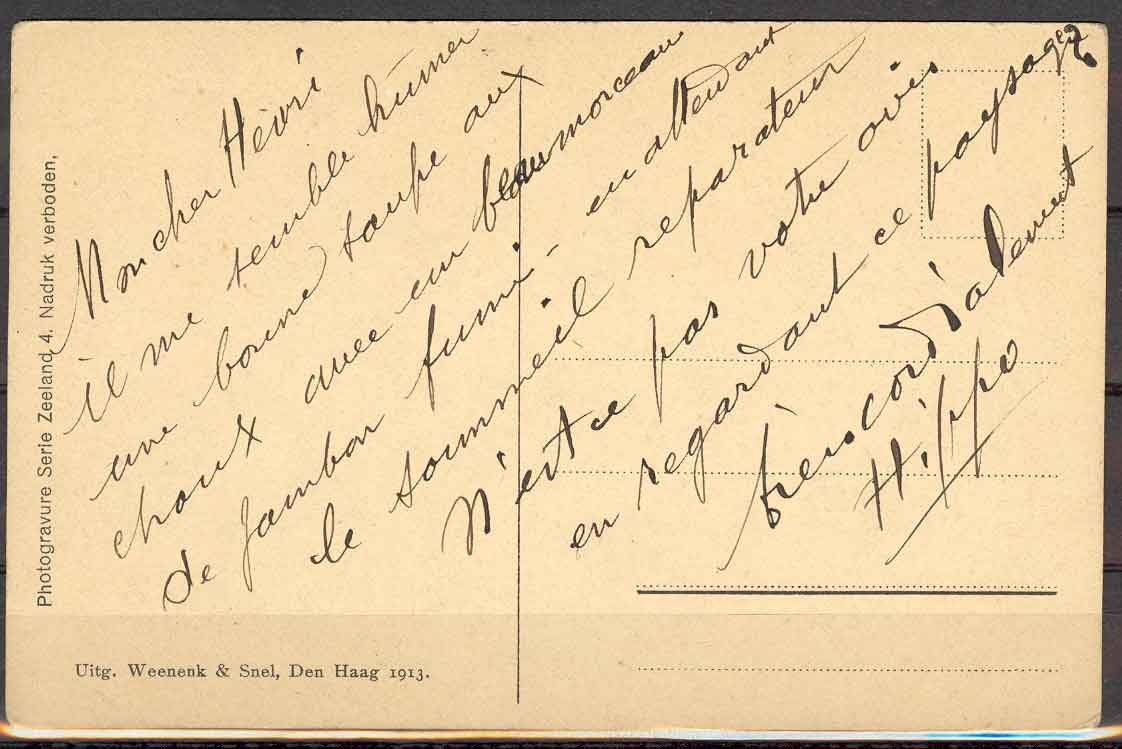 Mon cher Henri
il me semble humer
une bonne soupe aux
choux avec un beau morceau
de jambon fumé - en attendant
le sommeil reparateur
N'est ce pas votre avis
en regardant ce paysage
bien cordialement
Hippo
Photogravure Serie Zeeland 4. Nadruk verboden,
Uitg. Weenenk & Snel, Den Haag 1913.